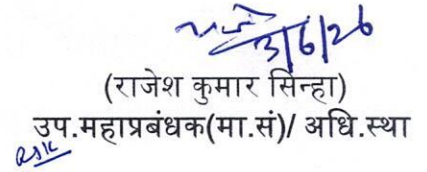 3/6/26
(राजेश कुमार सिन्हा)
उप.महाप्रबंधक(मा.सं)/ अधि.स्था